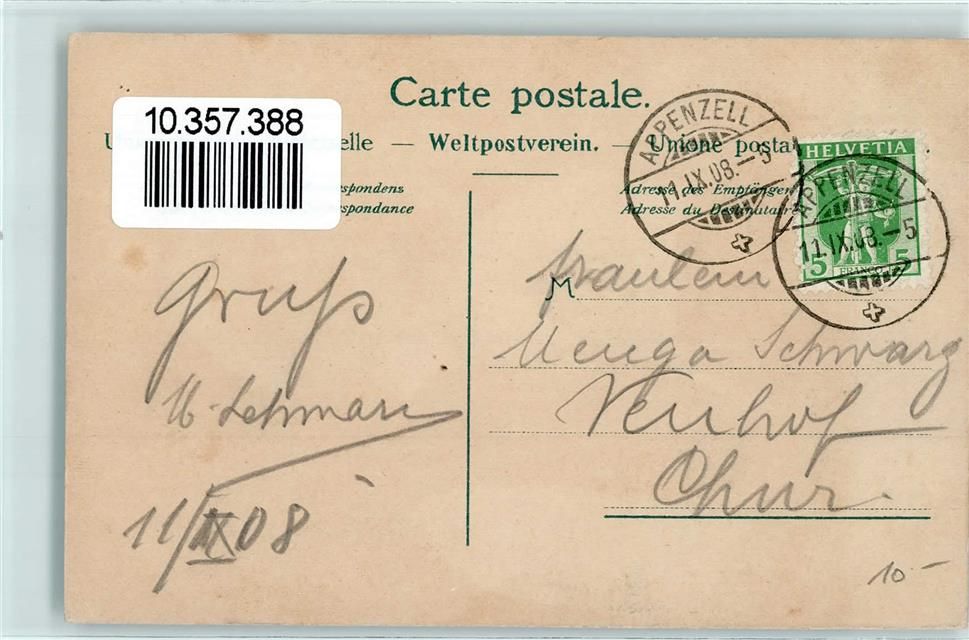 Carte postale.
10.357.388
elle — Weltpostverein. — Unione posta
spondenz
spondance
Adresse des Empfängers
Adresse du Destinataire
APPENZELL
11.IX.08.–5
HELVETIA
5 FRANCO 5
APPENZELL
11.IX.08.–5
Gruß
Lehmann
11/IX 08
M
Fräulein
Menga Schwarz
Neuhof
Chur.
10–